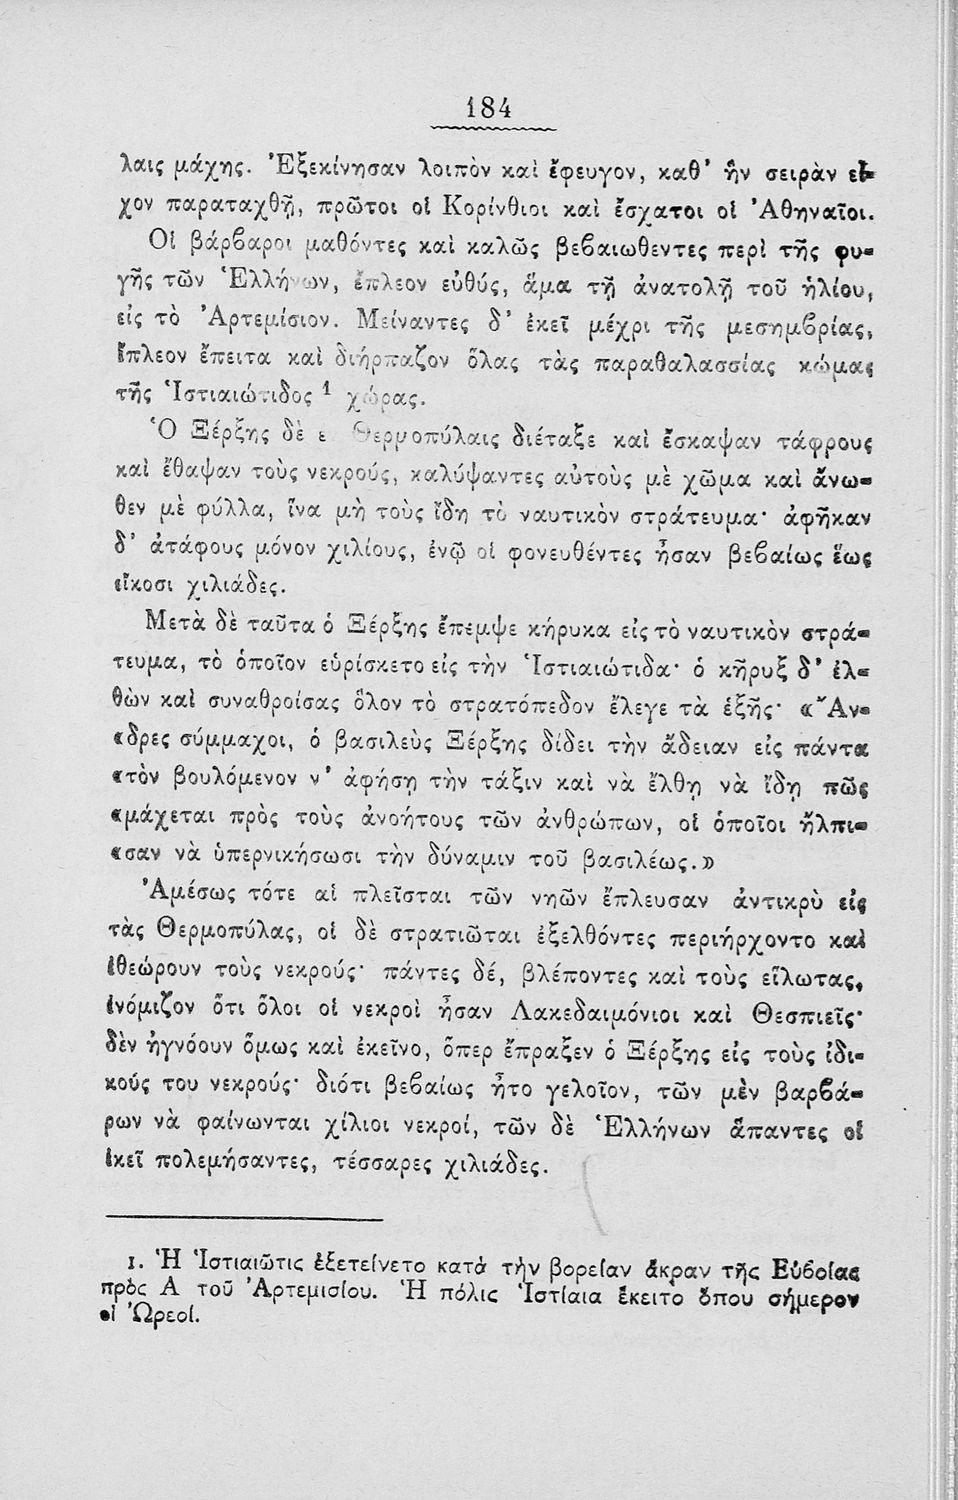 184
λαις μάχης. Ἐξεκίνησαν λοιπὸν καὶ ἔφευγον, καθ' ἣν σειρὰν εἶ-
χον παραταχθῆ, πρῶτοι οἱ Κορίνθιοι καὶ ἔσχατοι οἱ Ἀθηναῖοι.
Οἱ βάρβαροι μαθόντες καὶ καλῶς βεβαιωθεντες περὶ τῆς φυ-
γῆς τῶν Ἑλλήνων, ἔπλεον εὐθύς, ἅμα τῇ ἀνατολῇ τοῦ ἡλίου,
εἰς τὸ Ἀρτεμίσιον. Μείναντες δ' ἐκεῖ μέχρι τῆς μεσημβρίας,
ἔπλεον ἔπειτα καὶ διήρπαζον ὅλας τὰς παραθαλασσίας κώμας
τῆς Ἱστιαιώτιδος ¹ χώρας.
Ὁ Ξέρξης δὲ ἐ Θερμοπύλαις διέταξε καὶ ἔσκαψαν τάφρους
καὶ ἔθαψαν τοὺς νεκρούς, καλύψαντες αὐτοὺς μὲ χῶμα καὶ ἄνω-
θεν μὲ φύλλα, ἵνα μὴ τοὺς ἴδῃ τὸ ναυτικὸν στράτευμα· ἀφῆκαν
δ' ἀτάφους μόνον χιλίους, ἐνῷ οἱ φονευθέντες ἦσαν βεβαίως ἕως
εἴκοσι χιλιάδες.
Μετὰ δὲ ταῦτα ὁ Ξέρξης ἔπεμψε κήρυκα εἰς τὸ ναυτικὸν στρά-
τευμα, τὸ ὁποῖον εὑρίσκετο εἰς τὴν Ἱστιαιώτιδα· ὁ κῆρυξ δ' ἐλ-
θὼν καὶ συναθροίσας ὅλον τὸ στρατόπεδον ἔλεγε τὰ ἑξῆς· «Ἄν-
«δρες σύμμαχοι, ὁ βασιλεὺς Ξέρξης δίδει τὴν ἄδειαν εἰς πάντα
«τὸν βουλόμενον ν' ἀφήσῃ τὴν τάξιν καὶ νὰ ἔλθῃ νὰ ἴδῃ πῶς
«μάχεται πρὸς τοὺς ἀνοήτους τῶν ἀνθρώπων, οἱ ὁποῖοι ἤλπι-
«σαν νὰ ὑπερνικήσωσι τὴν δύναμιν τοῦ βασιλέως.»
Ἀμέσως τότε αἱ πλεῖσται τῶν νηῶν ἔπλευσαν ἀντικρὺ εἰς
τὰς Θερμοπύλας, οἱ δὲ στρατιῶται ἐξελθόντες περιήρχοντο καὶ
ἐθεώρουν τοὺς νεκρούς· πάντες δέ, βλέποντες καὶ τοὺς εἵλωτας,
ἐνόμιζον ὅτι ὅλοι οἱ νεκροὶ ἦσαν Λακεδαιμόνιοι καὶ Θεσπιεῖς·
δὲν ἠγνόουν ὅμως καὶ ἐκεῖνο, ὅπερ ἔπραξεν ὁ Ξέρξης εἰς τοὺς ἰδι-
κούς του νεκρούς· διότι βεβαίως ἦτο γελοῖον, τῶν μὲν βαρβά-
ρων νὰ φαίνωνται χίλιοι νεκροί, τῶν δὲ Ἑλλήνων ἅπαντες οἱ
ἐκεῖ πολεμήσαντες, τέσσαρες χιλιάδες.
1. Ἡ Ἱστιαιῶτις ἐξετείνετο κατὰ τὴν βορείαν ἄκραν τῆς Εὐβοίας
πρὸς Α τοῦ Ἀρτεμισίου. Ἡ πόλις Ἱστίαια ἔκειτο ὅπου σήμερον
οἱ Ὠρεοί.